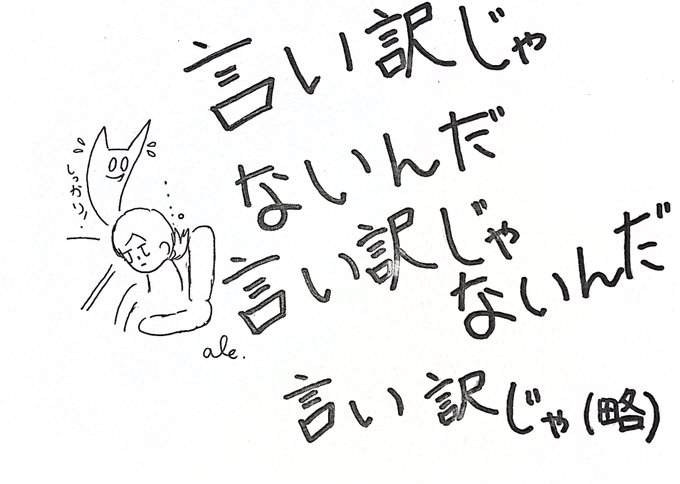 言い訳じゃ
ないんだ
言い訳じゃ
ないんだ
言い訳じゃ(略)
しっかり!
ale.